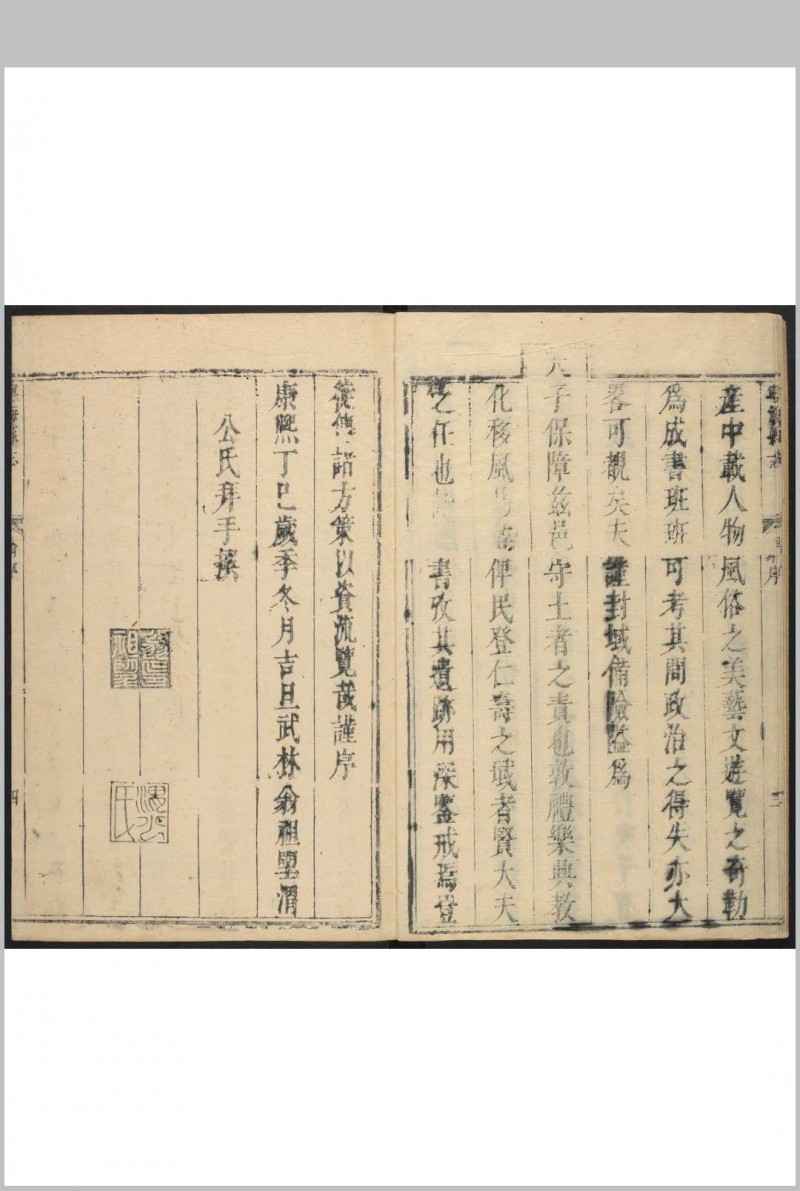 產中載人物風俗之美藝文遊覽之奇勒
爲成書班班可考其間政治之得失亦大
畧可觀矣夫謹封域備險隘爲
天子保障茲邑守土者之責也敦禮樂興教
化移風易俗俾民登仁壽之域者賢大夫
之任也 書攷其遺跡用深鑒戒焉豈
徒傳諸方策以資流覽哉謹序
康熙丁巳歲季冬月吉旦武林翁祖望渭
公氏拜手撰